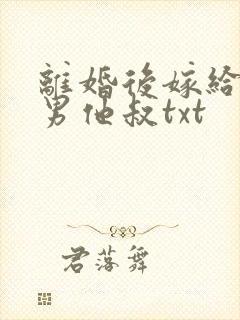 離婚後嫁給
男他叔txt
君落舞